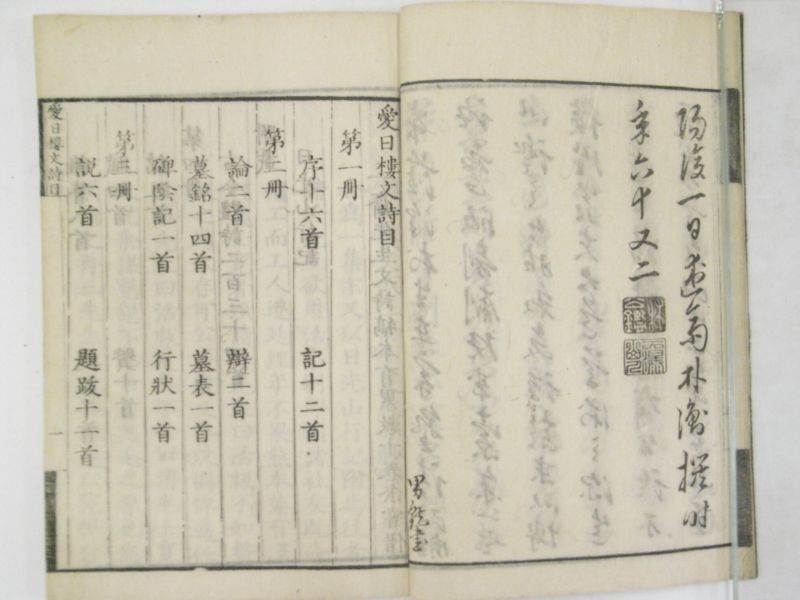 陽復一日書弟朴衡撰時
年六十又二
男龍書
愛日樓文詩目
第一冊
序十六首 記十二首
第二冊
論二首 辯二首
墓銘十四首 墓表一首
碑陰記一首 行狀一首
第三冊
説六首 題跋十一首
愛日樓文詩目